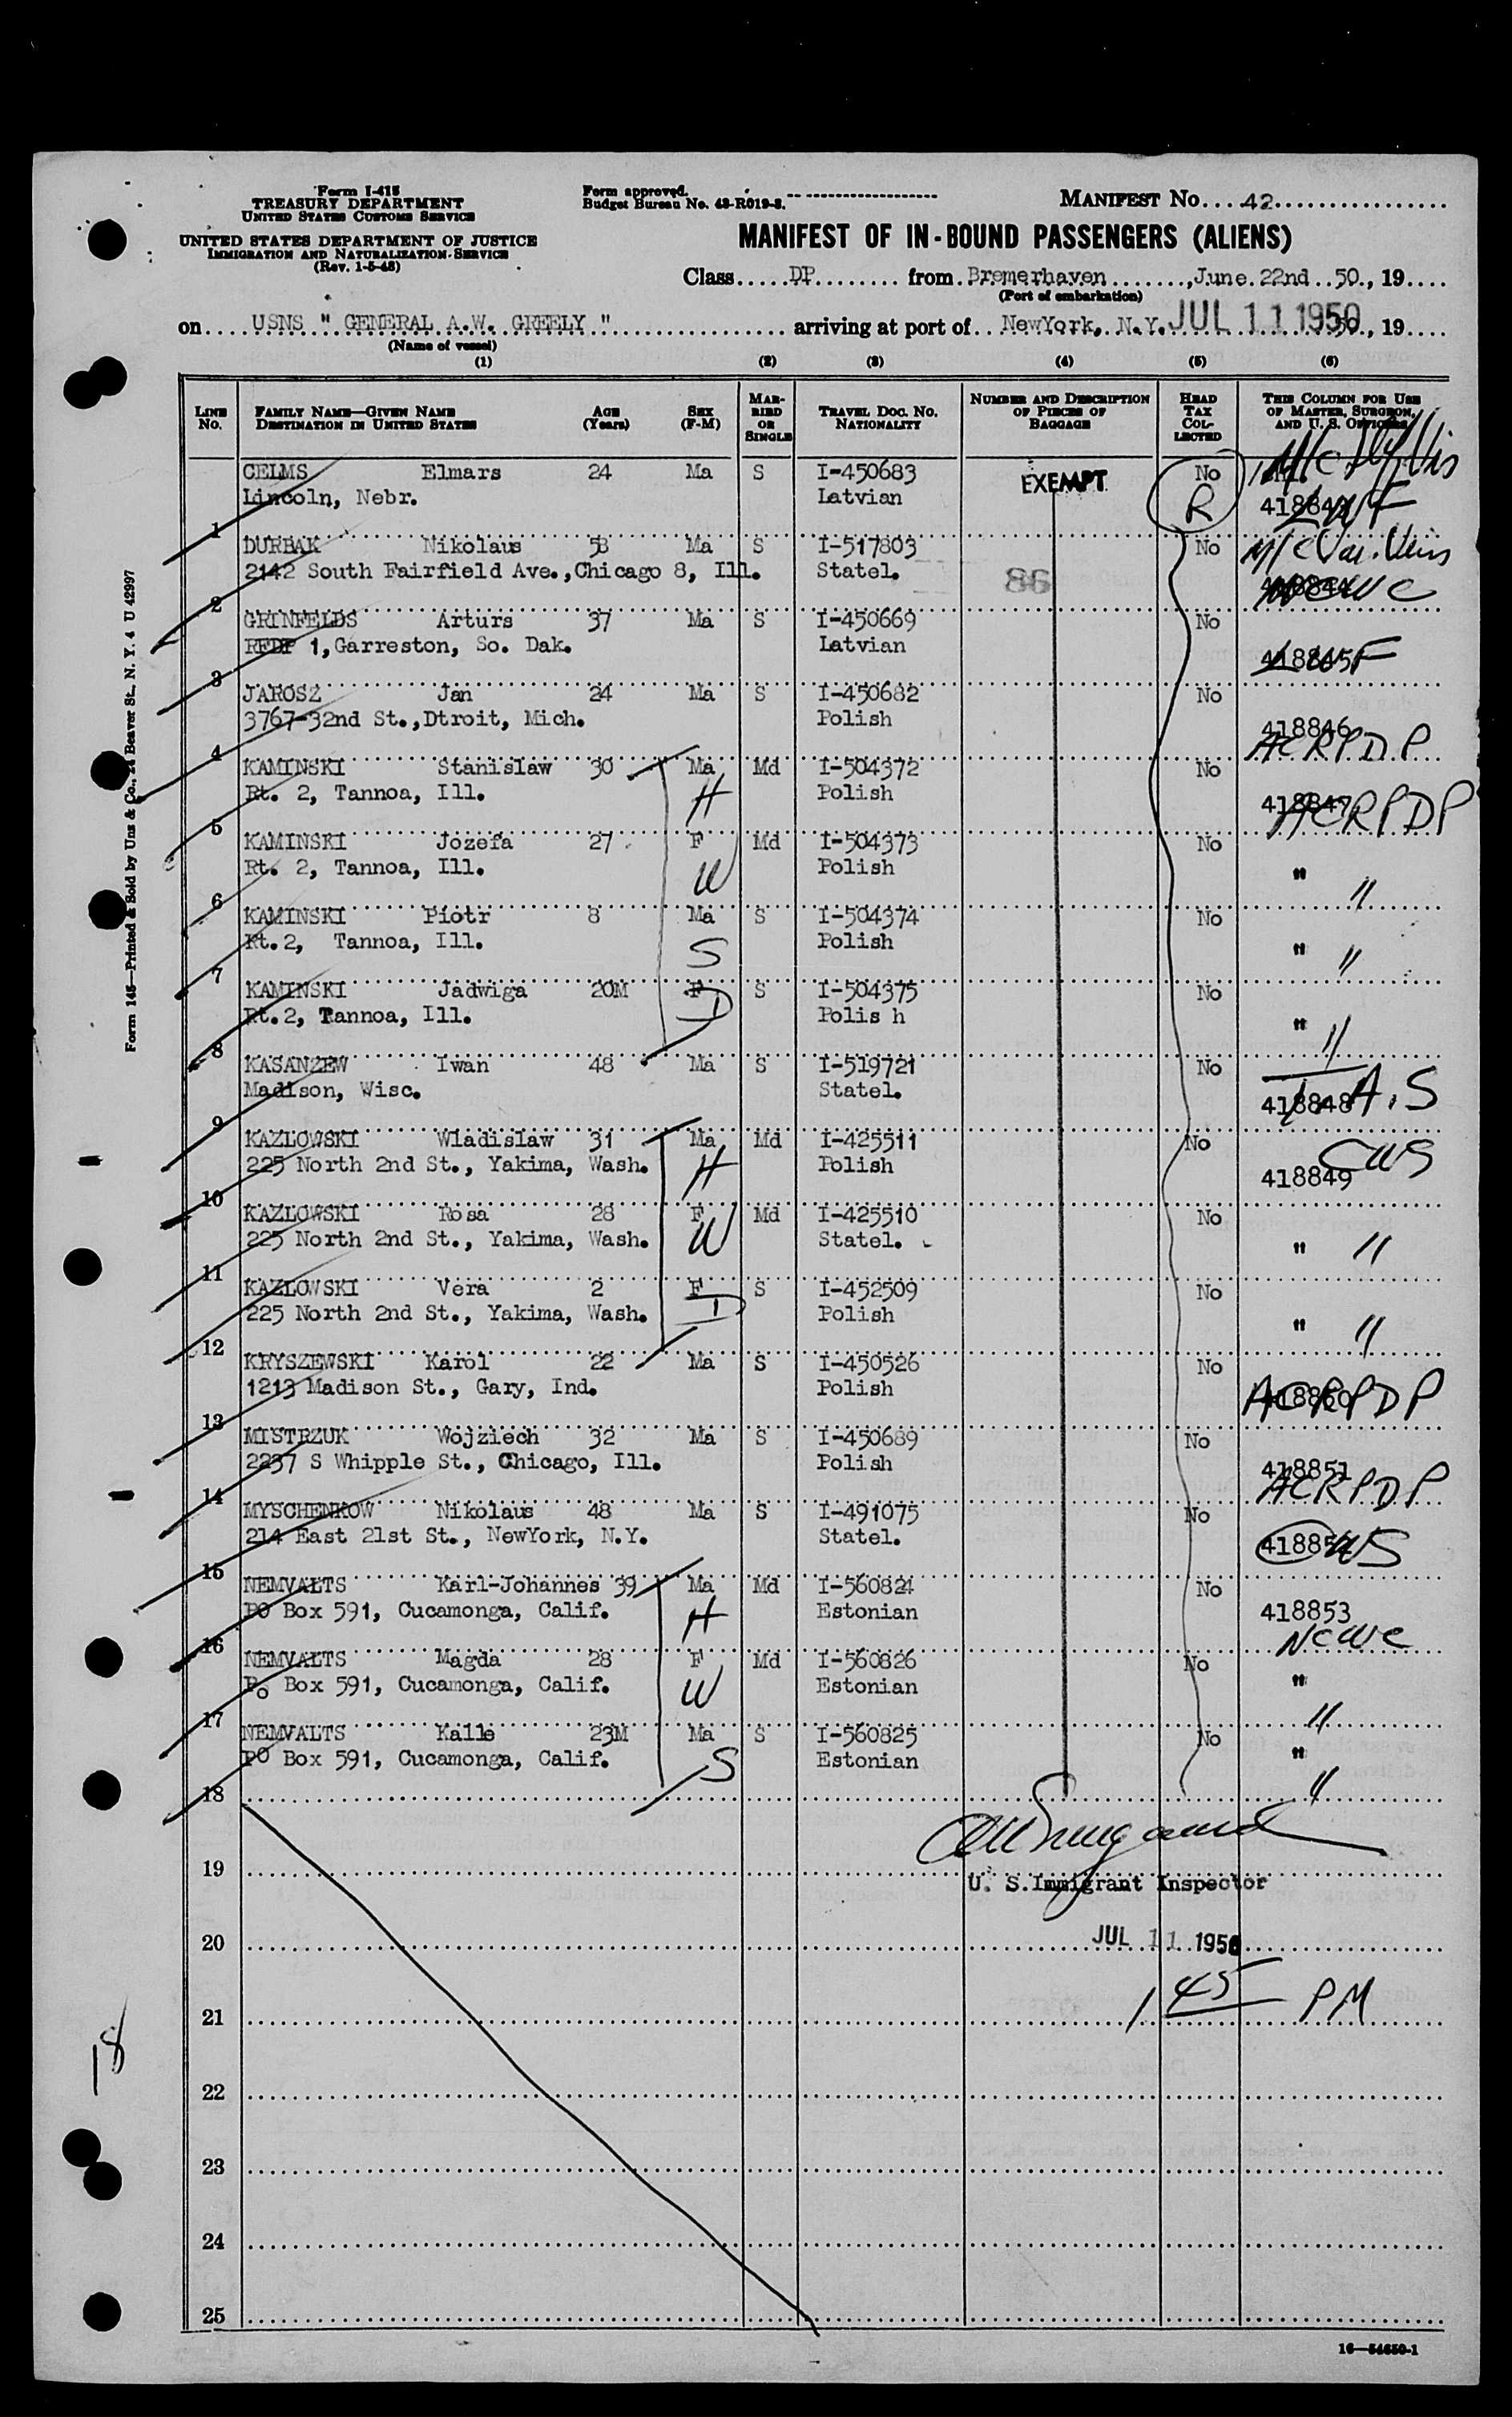 Form I-415
TREASURY DEPARTMENT
UNITED STATES CUSTOMS SERVICE
UNITED STATES DEPARTMENT OF JUSTICE
IMMIGRATION AND NATURALIZATION SERVICE
(Rev. 1-5-48)
Form approved.
Budget Bureau No. 43-R019-3.
MANIFEST No. 42
MANIFEST OF IN-BOUND PASSENGERS (ALIENS)
Class DP from Bremerhaven, June 22nd 50, 19
(Port of embarkation)
on USNS " GENERAL A.W. GREELY " arriving at port of NewYork, N.Y. JUL 11 1950 50, 19
(Name of vessel)
(1) (2) (3) (4) (5) (6)
LINE No. FAMILY NAME—GIVEN NAME DESTINATION IN UNITED STATES AGE (Years) SEX (F-M) MARRIED OR SINGLE TRAVEL DOC. NO. NATIONALITY NUMBER AND DESCRIPTION OF PIECES OF BAGGAGE HEAD TAX COLLECTED THIS COLUMN FOR USE OF MASTER, SURGEON, AND U. S. OFFICERS
CELMS Elmars 24 Ma S I-450683 EXEMPT No
1 Lincoln, Nebr. Latvian R LWF
DURBAK Nikolaus 58 Ma S I-517803 No
2 2142 South Fairfield Ave.,Chicago 8, Ill. Statel. 86 NCWC
GRINFELDS Arturs 37 Ma S I-450669 No
3 RFDP 1,Garreston, So. Dak. Latvian 418845 LWF
JAROSZ Jan 24 Ma S I-450682 No
4 3767-32nd St.,Dtroit, Mich. Polish 418846 ACRPDP
KAMINSKI Stanislaw 30 Ma Md I-504372 No
5 Rt. 2, Tannoa, Ill. H Polish 418847 ACRPDP
KAMINSKI Jozefa 27 F Md I-504373 No
6 Rt. 2, Tannoa, Ill. W Polish " "
KAMINSKI Piotr 8 Ma S I-504374 No
7 Rt.2, Tannoa, Ill. S Polish " "
KAMINSKI Jadwiga 20M F S I-504375 No
8 Rt.2, Tannoa, Ill. D Polis h " "
KASANZEW Iwan 48 Ma S I-519721 No
9 Madison, Wisc. Statel. 418848
KAZLOWSKI Wladislaw 31 Ma Md I-425511 No
10 225 North 2nd St., Yakima, Wash. H Polish 418849 CWS
KAZLOWSKI Rosa 28 F Md I-425510 No
11 225 North 2nd St., Yakima, Wash. W Statel. " "
KAZLOWSKI Vera 2 F S I-452509 No
12 225 North 2nd St., Yakima, Wash. D Polish " "
KRYSZEWSKI Karol 22 Ma S I-450526 No
13 1213 Madison St., Gary, Ind. Polish ACRPDP
MISTRZUK Wojziech 32 Ma S I-450689 No
14 2237 S Whipple St., Chicago, Ill. Polish 418851 ACRPDP
MYSCHENKOW Nikolaus 48 Ma S I-491075 No
15 214 East 21st St., NewYork, N.Y. Statel. 418852 CWS
NEMVALTS Karl-Johannes 39 Ma Md I-560824 No
16 PO Box 591, Cucamonga, Calif. H Estonian 418853 NCWC
NEMVALTS Magda 28 F Md I-560826 No
17 Po Box 591, Cucamonga, Calif. W Estonian " "
NEMVALTS Kalle 23M Ma S I-560825 No
18 PO Box 591, Cucamonga, Calif. S Estonian " "
19
U. S. Immigrant Inspector
20
JUL 11 1950
21
1 45 PM
22
23
24
25
16—54650-1
18
Form 145—Printed & Sold by Unz & Co., 24 Beaver St., N. Y. 4 U 42997